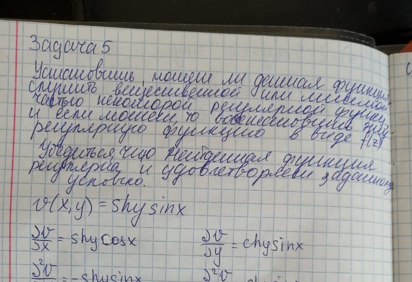 Задача 5
Установить, может ли данная функция
служить вещественной или мнимой
частью некоторой регулярной функц
и если может, то
регулярную функцию в виде f(z)
Убедиться что найденная функция
регулярна и удовлетворяет заданному
условию.
v(x,y) = shy sinx
∂v/∂x = shy cosx ∂v/∂y = chy sinx
∂²v = -shy sinx ∂²v